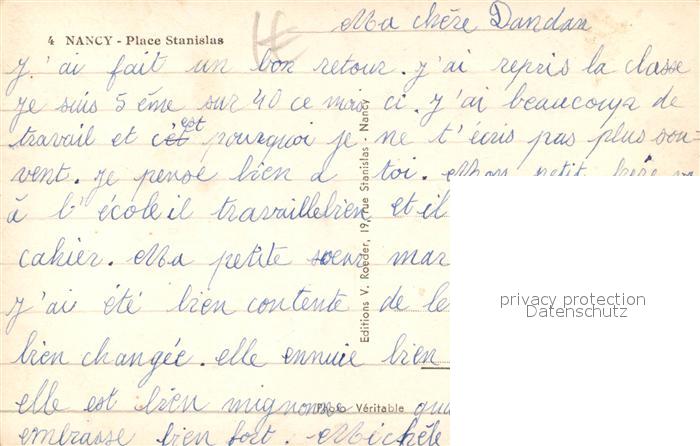 Ma chère Dandan
4 NANCY - Place Stanislas
J'ai fait un bon retour. J'ai repris la classe
Je suis 5 ème sur 40 ce mois ci. J'ai beaucoup de
travail et c'est pourquoi je ne t'écris pas plus sou-
vent. Je pense bien a toi. Mon petit frère va
à l'école il travaille bien et il
cahier. Ma petite soeur mar
J'ai été bien contente de le
bien changée. elle ennuie bien
elle est bien mignonne qua
embrasse bien fort. Michèle
Editions V. Roeder, 19, rue Stanislas - Nancy
Photo Véritable
privacy protection
Datenschutz